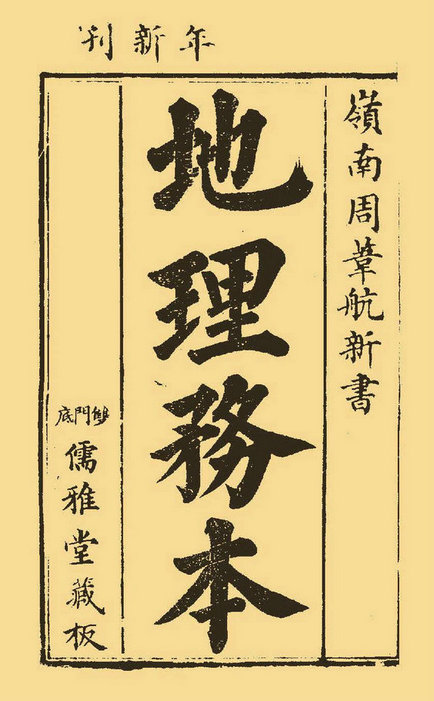 年新刊
嶺南周葦航新書
地理務本
雙門底
儒雅堂藏板